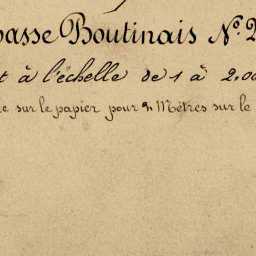 basse Boutinais N.º 2
t à l'échelle de 1 à 2,00
re sur le papier pour 2 Mètres sur le